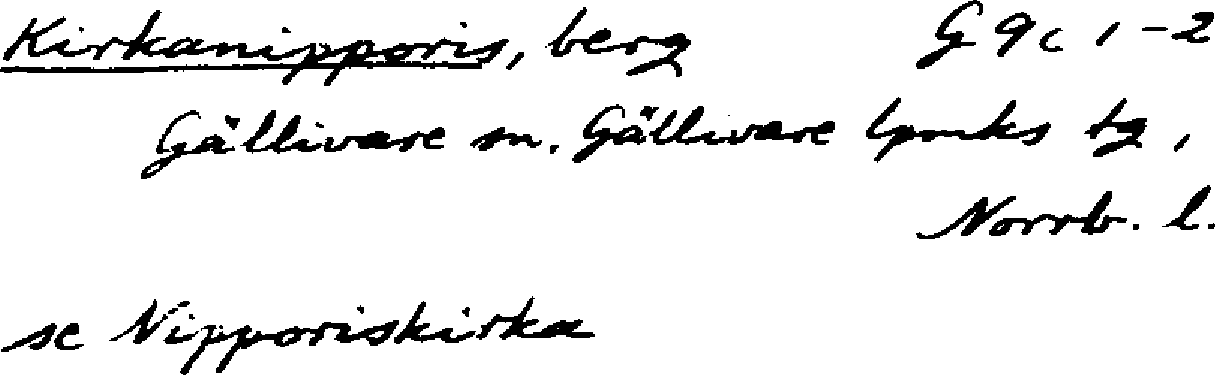 Kirkanipporis, berg G 9 c 1-2
Gällivare sn. Gällivare lpmks tg,
Norrb. l.
se Nipporiskirka